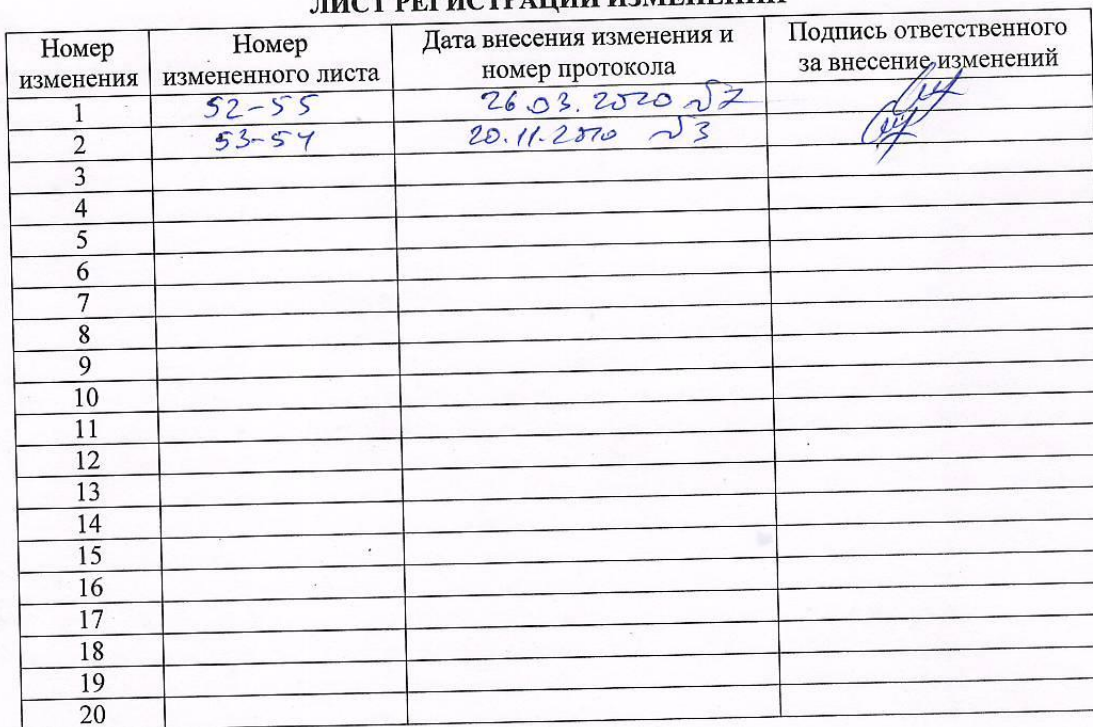 ЛИСТ РЕГИСТРАЦИИ ИЗМЕНЕНИЙ
Номер изменения
Номер измененного листа
Дата внесения изменения и номер протокола
Подпись ответственного за внесение изменений
1 52-55 26.03.2020 №7
2 53-54 20.11.2020 №3
3
4
5
6
7
8
9
10
11
12
13
14
15
16
17
18
19
20